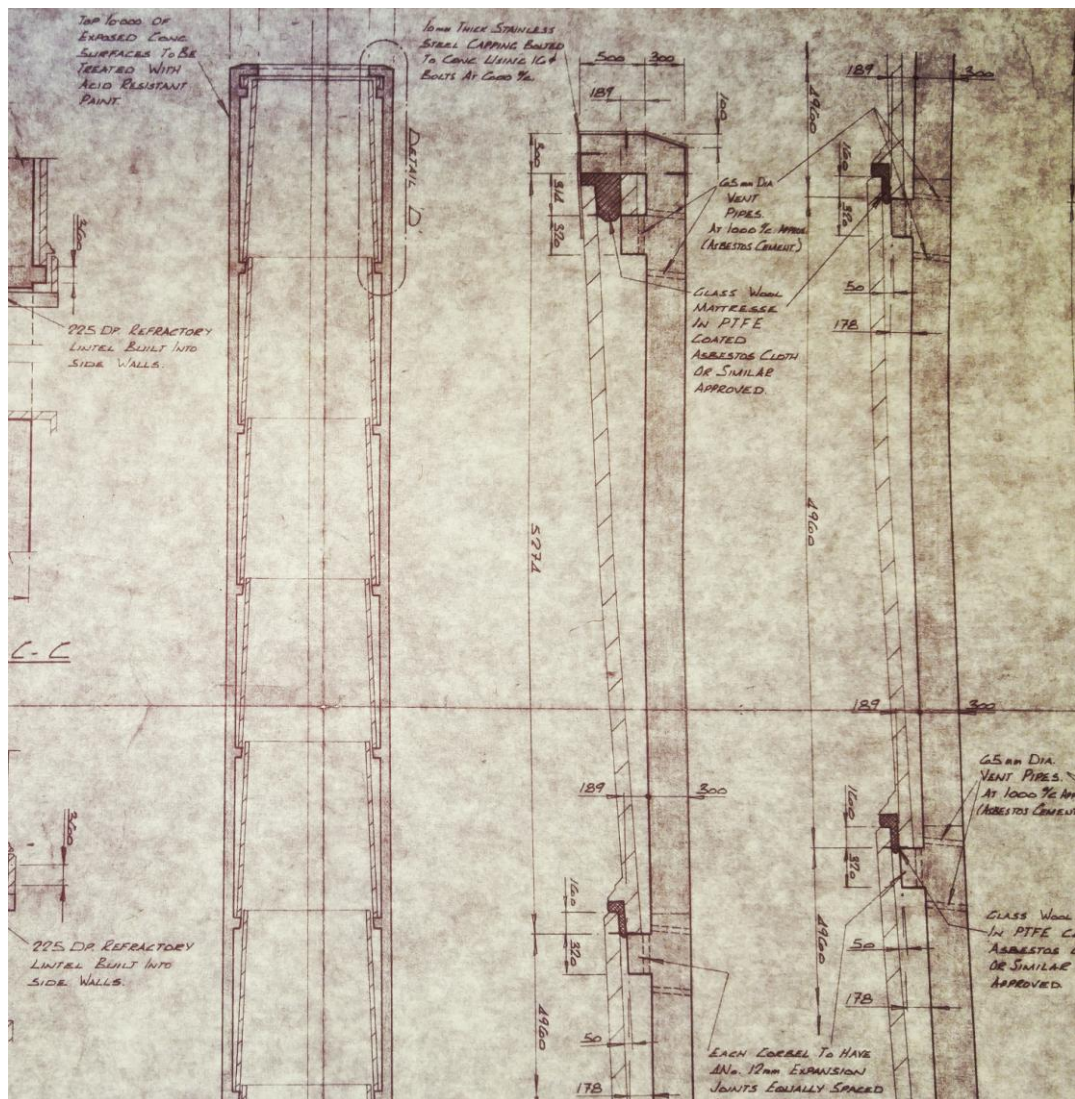 TOP 10000 OF
EXPOSED CONC
SURFACES TO BE
TREATED WITH
ACID RESISTANT
PAINT.
10mm THICK STAINLESS
STEEL CAPPING BOLTED
TO CONC USING 16φ
BOLTS AT 6000 %
DETAIL 'D'
500
300
189
100
300
314
370
65mm DIA
VENT
PIPES.
AT 1000 % APPROX
(ASBESTOS CEMENT)
GLASS WOOL
MATTRESSE
IN PTFE
COATED
ASBESTOS CLOTH
OR SIMILAR
APPROVED.
189
300
4960
160
370
50
178
225 DP. REFRACTORY
LINTEL BUILT INTO
SIDE WALLS.
C-C
5274
4960
189
300
189
300
65mm DIA.
VENT PIPES.
AT 1000 %
(ASBESTOS CEMENT
160
370
160
370
225 DP. REFRACTORY
LINTEL BUILT INTO
SIDE WALLS.
GLASS WOOL
IN PTFE
ASBESTOS
OR SIMILAR
APPROVED
4960
4960
50
178
50
178
EACH CORBEL TO HAVE
4No. 12mm EXPANSION
JOINTS EQUALLY SPACED